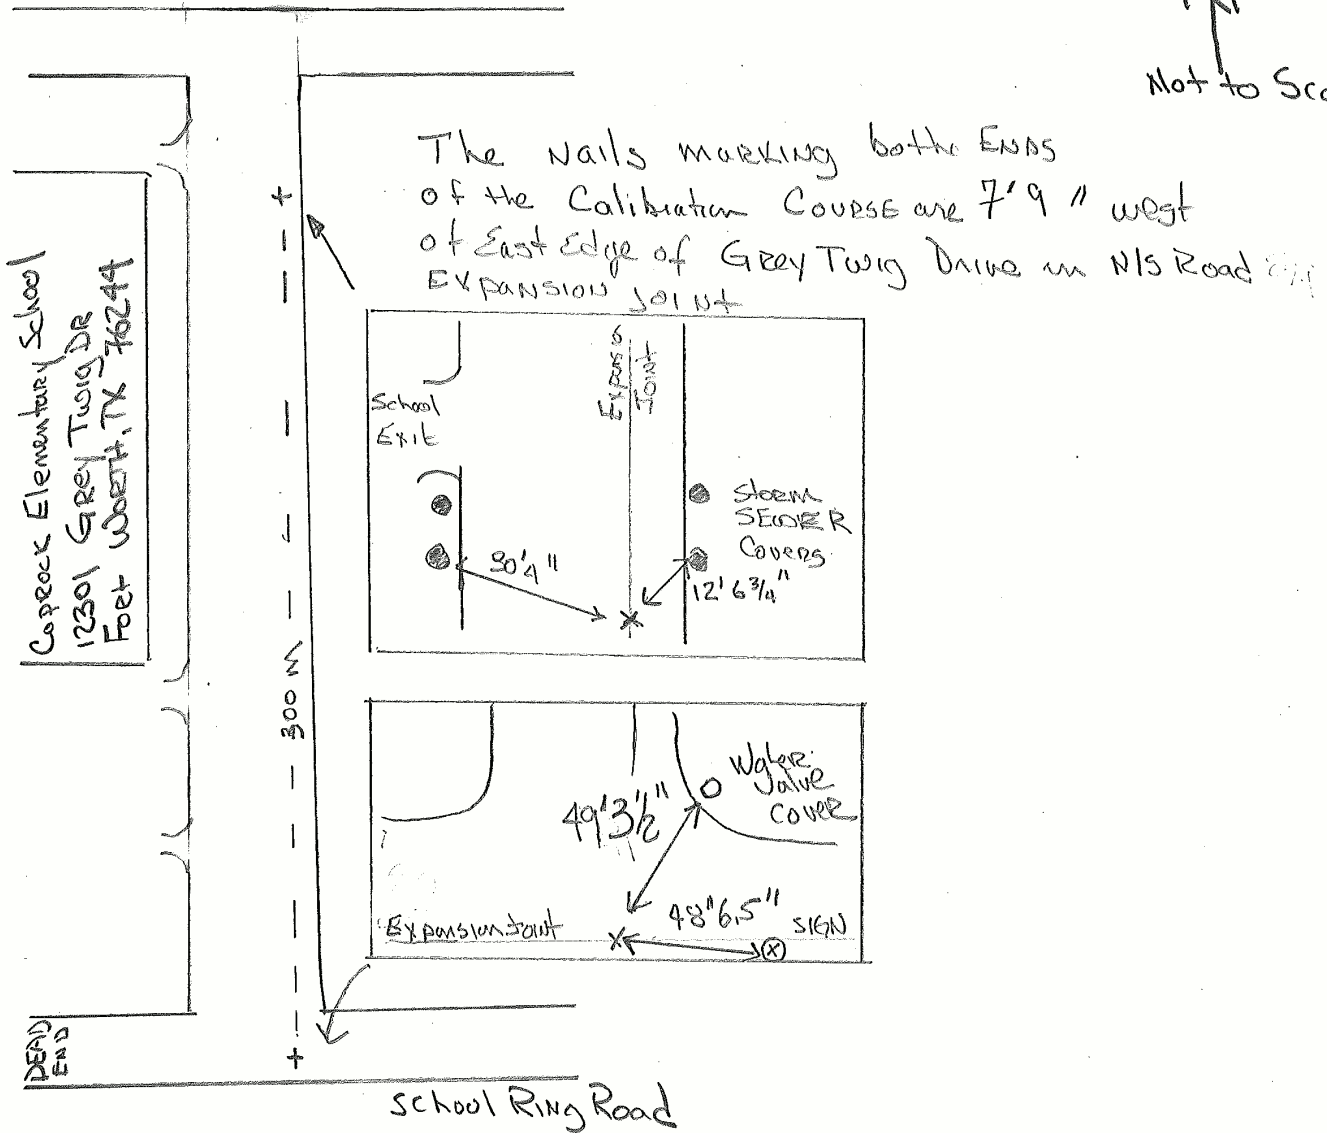 Not to Sca
The Nails marking both Ends
of the Calibration Course are 7'9" west
of East Edge of Grey Twig Drive in N/S Road
Expansion Joint
Caprock Elementary School
12301 Grey Twig DR
Fort Worth, TX 76244
300 M
Expansio
Joint
School
Exit
Storm
Sewer
Covers
30'4"
12' 6 3/4"
Water
Valve
Cover
49'3½"
48"6.5"
SIGN
Expansion Joint
DEAD
END
School Ring Road